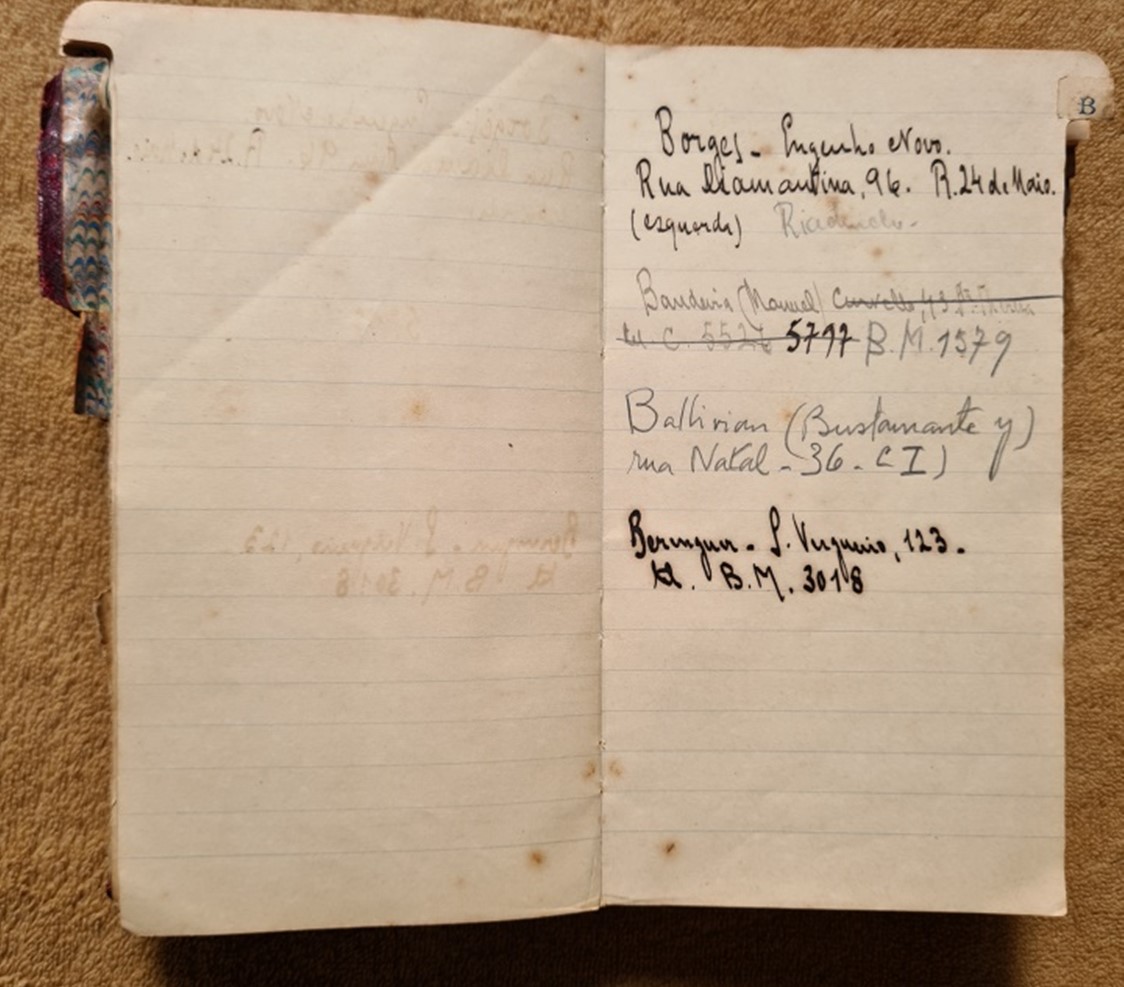 B
Borges - Engenho Novo.
Rua Diamantina, 96. R. 24 de Maio.
(esquerda) Riachuelo.
Bandeira (Manuel) Curvello, 43
tel. C. 5521 5797 B. M. 1579
Ballivian (Bustamante y)
rua Natal - 36 - C I)
Berenguer - S. Vergueiro, 123.
tel. B. M. 3018